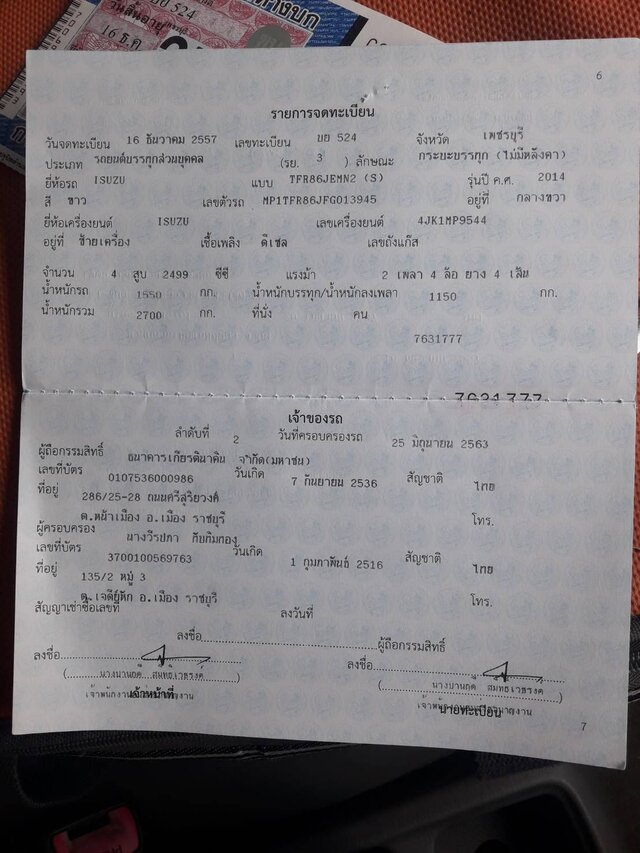 ปย 524
วันสิ้นอายุ
16 ธ.ค
6
รายการจดทะเบียน
วันจดทะเบียน 16 ธันวาคม 2557 เลขทะเบียน บย 524 จังหวัด เพชรบุรี
ประเภท รถยนต์บรรทุกส่วนบุคคล (รย. 3 ) ลักษณะ กระบะบรรทุก (ไม่มีหลังคา)
ยี่ห้อรถ ISUZU แบบ TFR86JEMN2 (S) รุ่นปี ค.ศ. 2014
สี ขาว เลขตัวรถ MP1TFR86JFG013945 อยู่ที่ กลางขวา
ยี่ห้อเครื่องยนต์ ISUZU เลขเครื่องยนต์ 4JK1MP9544
อยู่ที่ ซ้ายเครื่อง เชื้อเพลิง ดีเซล เลขถังแก๊ส
จำนวน 4 สูบ 2499 ซีซี แรงม้า 2 เพลา 4 ล้อ ยาง 4 เส้น
น้ำหนักรถ 1550 กก. น้ำหนักบรรทุก/น้ำหนักลงเพลา 1150 กก.
น้ำหนักรวม 2700 กก. ที่นั่ง คน
7631777
7631777
เจ้าของรถ
ลำดับที่ 2 วันที่ครอบครองรถ 25 มิถุนายน 2563
ผู้ถือกรรมสิทธิ์ ธนาคารเกียรตินาคิน จำกัด(มหาชน)
เลขที่บัตร 0107536000986 วันเกิด 7 กันยายน 2536 สัญชาติ ไทย
ที่อยู่ 286/25-28 ถนนศรีสุริยวงศ์
ต.หน้าเมือง อ.เมือง ราชบุรี โทร.
ผู้ครอบครอง นางวีรปภา กัยกิมกอง
เลขที่บัตร 3700100569763 วันเกิด 1 กุมภาพันธ์ 2516 สัญชาติ ไทย
ที่อยู่ 135/2 หมู่ 3
ต.เจดีย์หัก อ.เมือง ราชบุรี โทร.
สัญญาเช่าซื้อเลขที่ ลงวันที่
ลงชื่อ ผู้ถือกรรมสิทธิ์
ลงชื่อ ลงชื่อ
เจ้าหน้าที่ นายทะเบียน
7